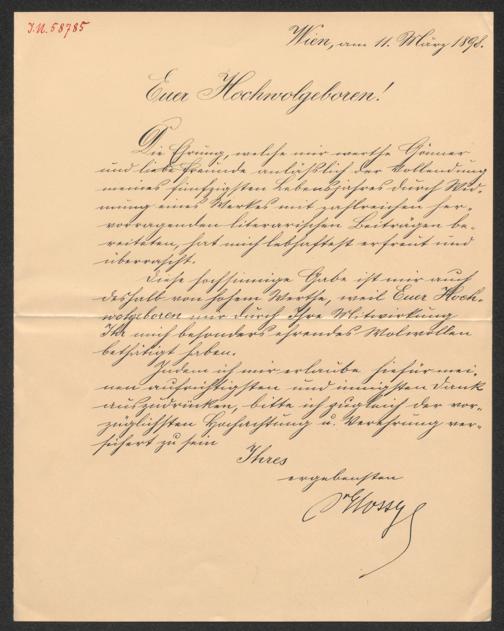 I.N. 58785
Wien, am 11. März 1898.
Euer Hochwolgeboren!
Die Ehrung, welche mir werthe Gönner
und liebe Freunde anläßlich der Vollendung
meines fünfzigsten Lebensjahres durch Wid-
mung eines Werkes mit zahlreichen her-
vorragenden literarischen Beiträgen be-
reiteten, hat mich lebhaftest erfreut und
überrascht.
Diese hochsinnige Gabe ist mir auch
deshalb von hohem Werthe, weil Euer Hoch-
wolgeboren mir durch Ihre Mitwirkung
Ihr mich besonders ehrendes Wolwollen
bethätigt haben.
Indem ich mir erlaube hiefür mei-
nen aufrichtigsten und innigsten Dank
auszudrücken, bitte ich zugleich der vor-
züglichsten Hochachtung u. Verehrung ver-
sichert zu sein
Ihres
ergebensten
Glossy